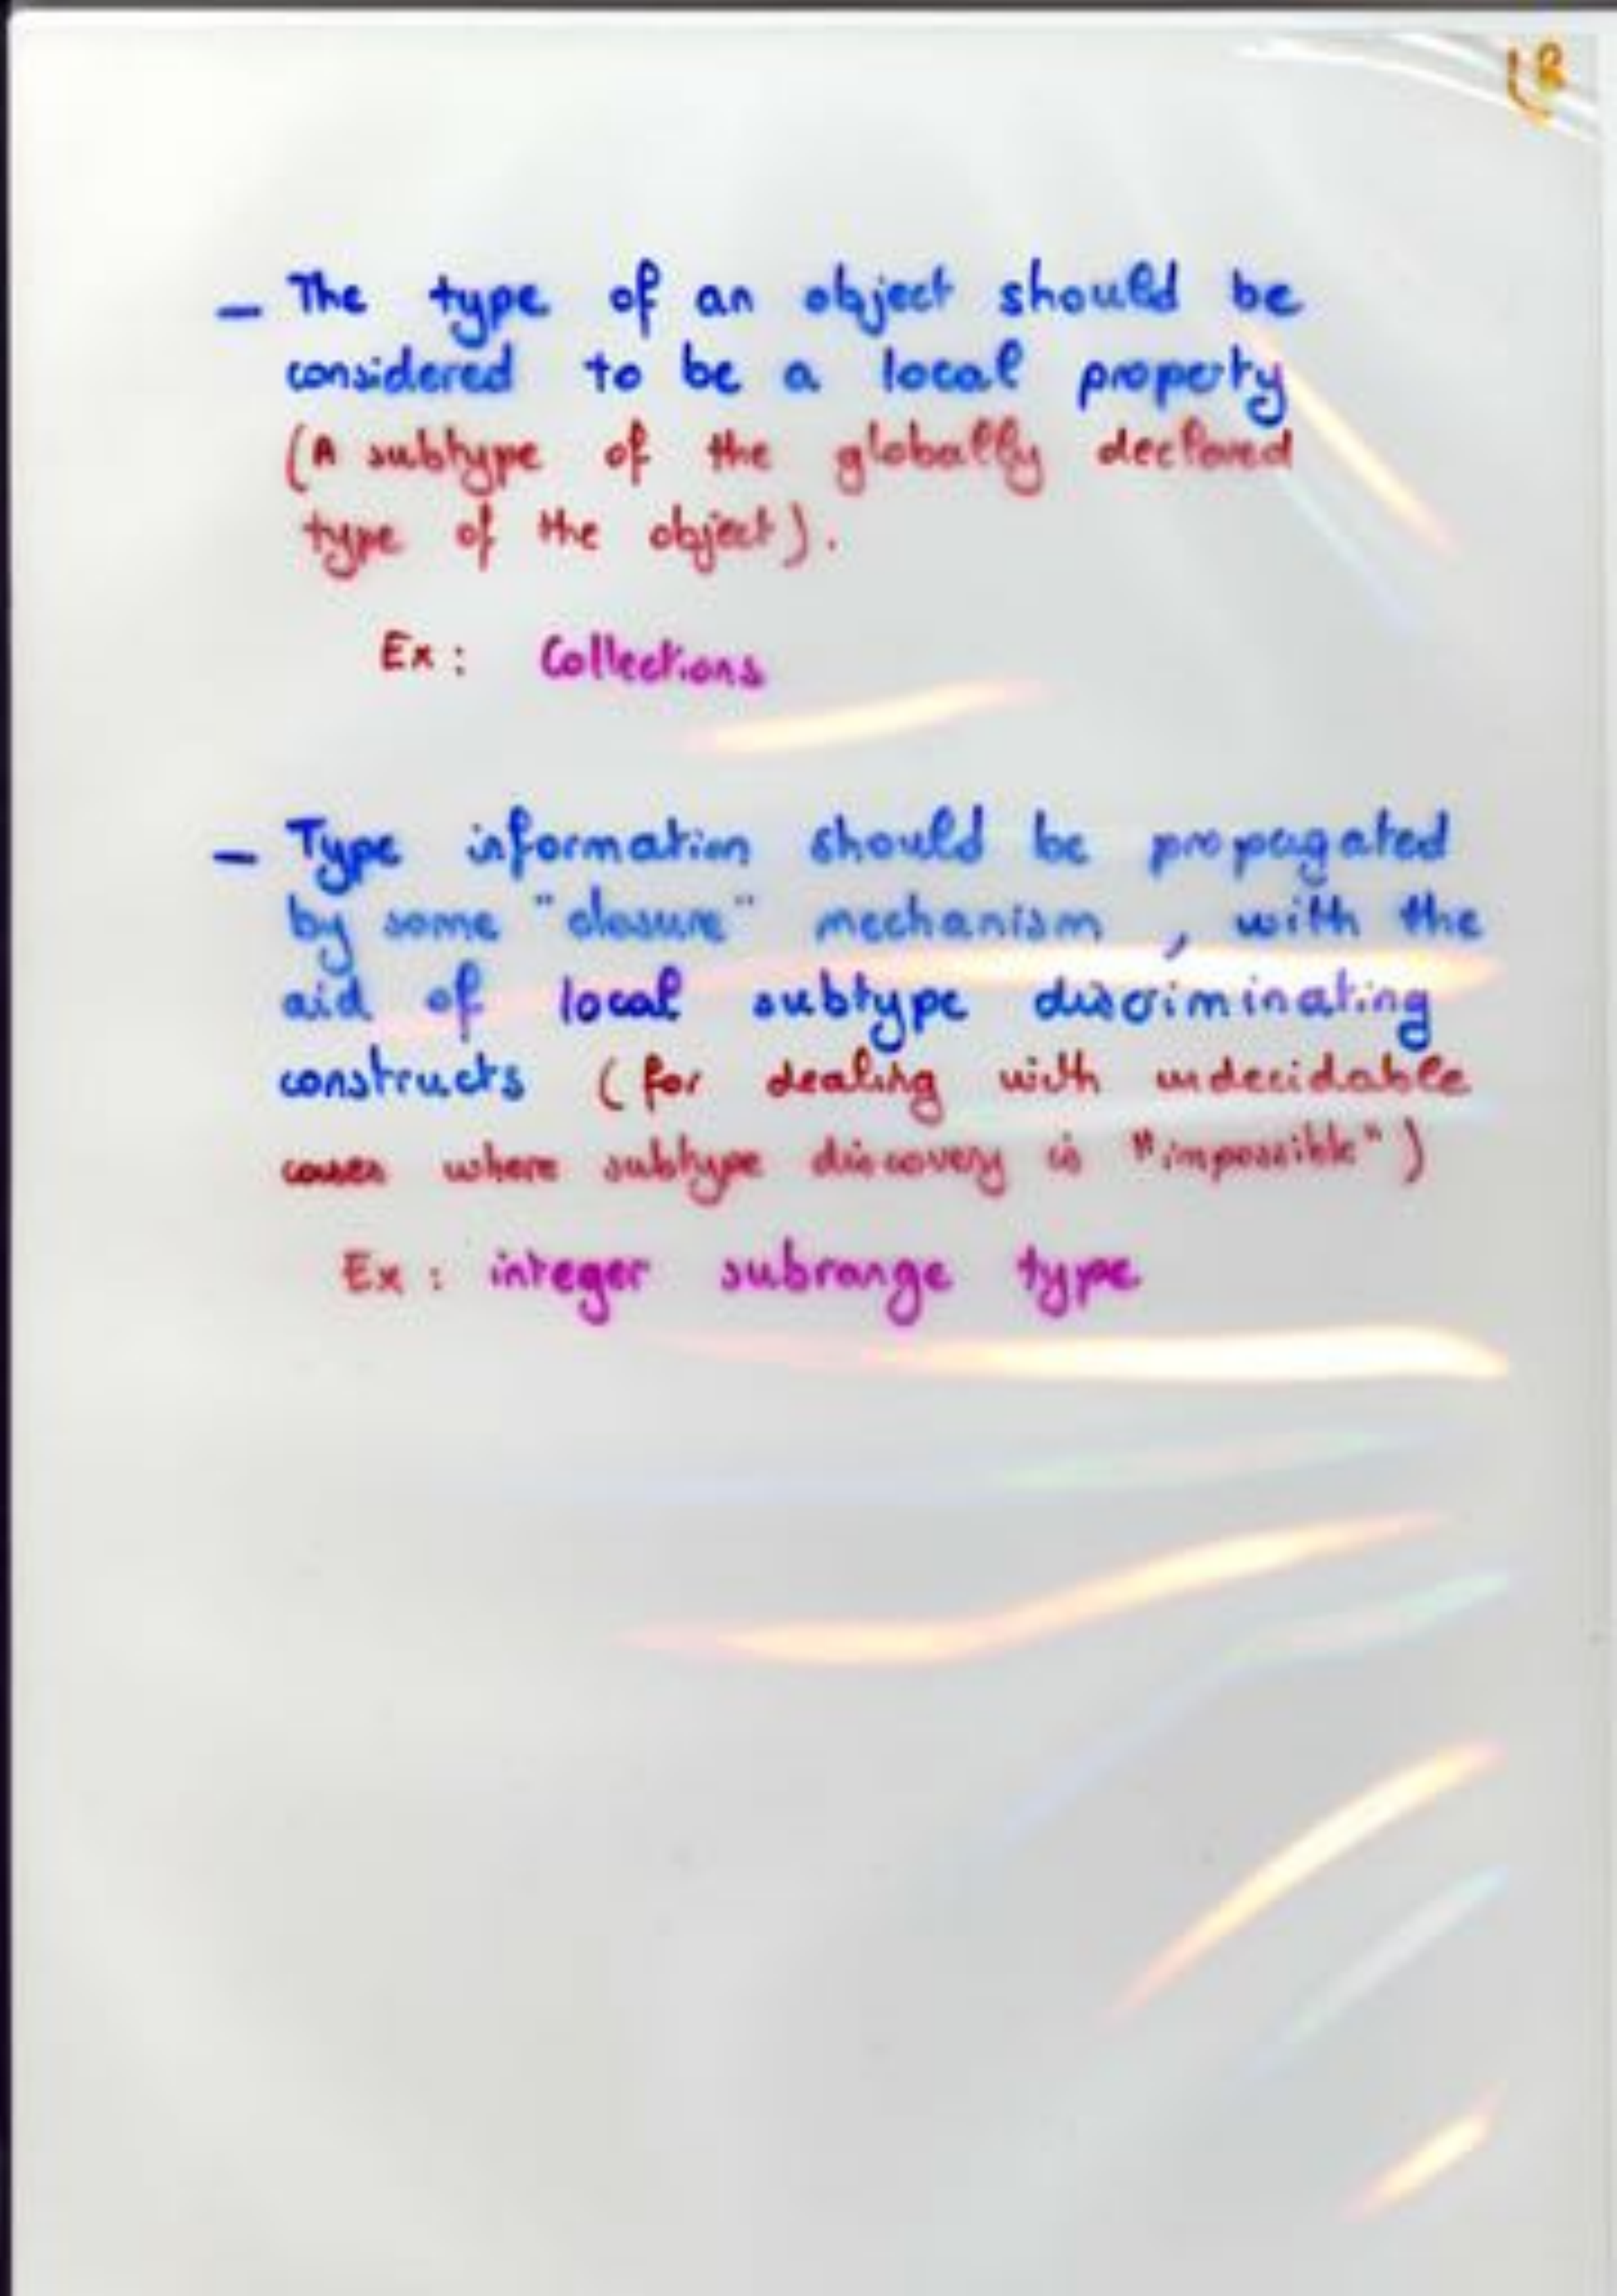 – The type of an object should be
considered to be a local property
(A subtype of the globally declared
type of the object).
Ex: Collections
– Type information should be propagated
by some "closure" mechanism, with the
aid of local subtype discriminating
constructs (for dealing with undecidable
cases where subtype discovery is "impossible")
Ex: integer subrange type